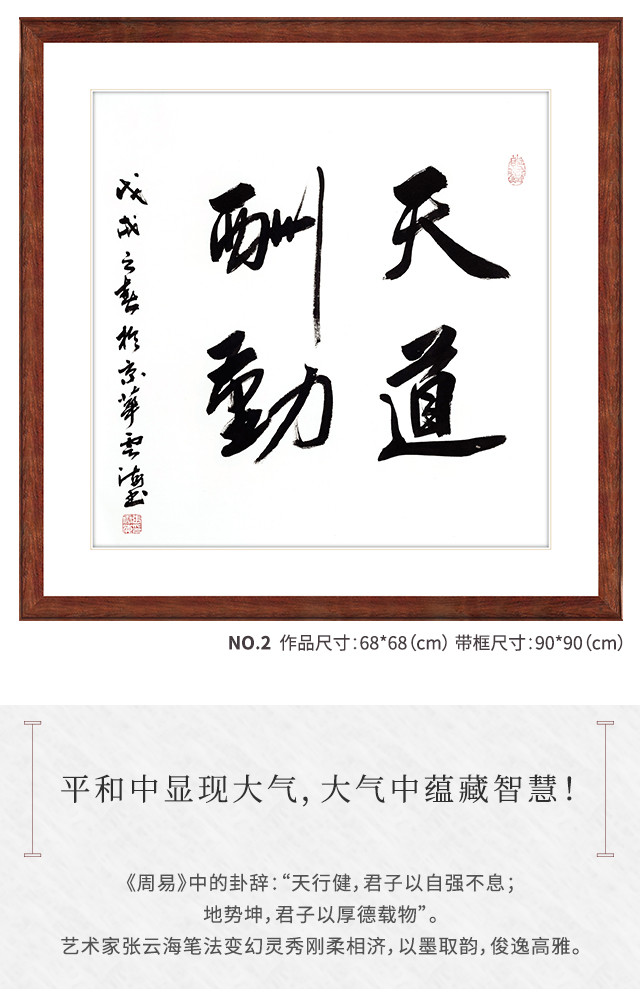 天道
酬勤
戊戌之春於京華雲海書
NO.2 作品尺寸：68*68（cm） 带框尺寸：90*90（cm）
平和中显现大气，大气中蕴藏智慧！
《周易》中的卦辞：“天行健，君子以自强不息；
地势坤，君子以厚德载物”。
艺术家张云海笔法变幻灵秀刚柔相济，以墨取韵，俊逸高雅。